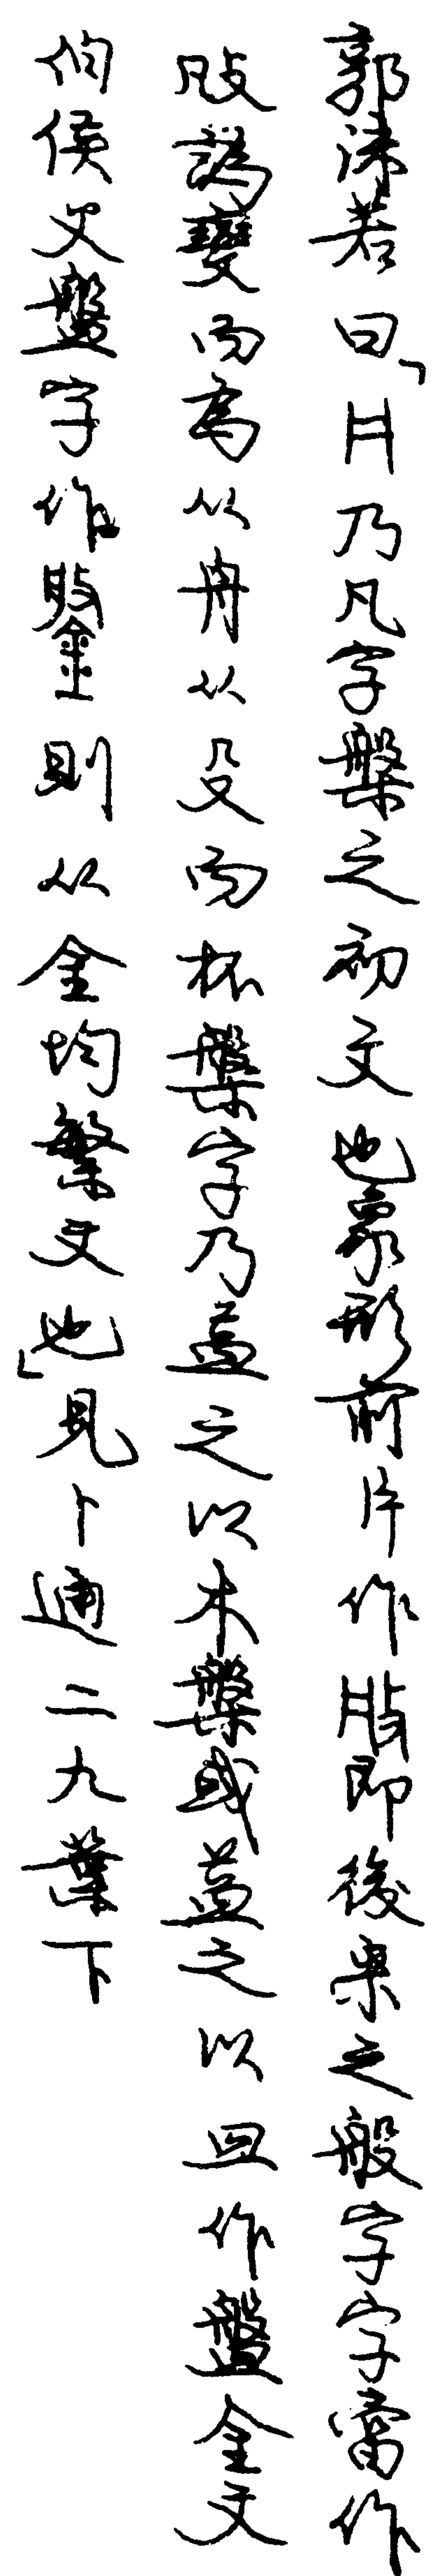 郭沫若曰「𠙴乃凡字槃之初文也象形前片作𣪂即後栔之般字字當作
𣪂譌變而為从舟从殳而杯槃字乃益之以木槃或益之以皿作盤金文
伯侯父盤字作鎜則从金均繁文也」見卜通二九葉下